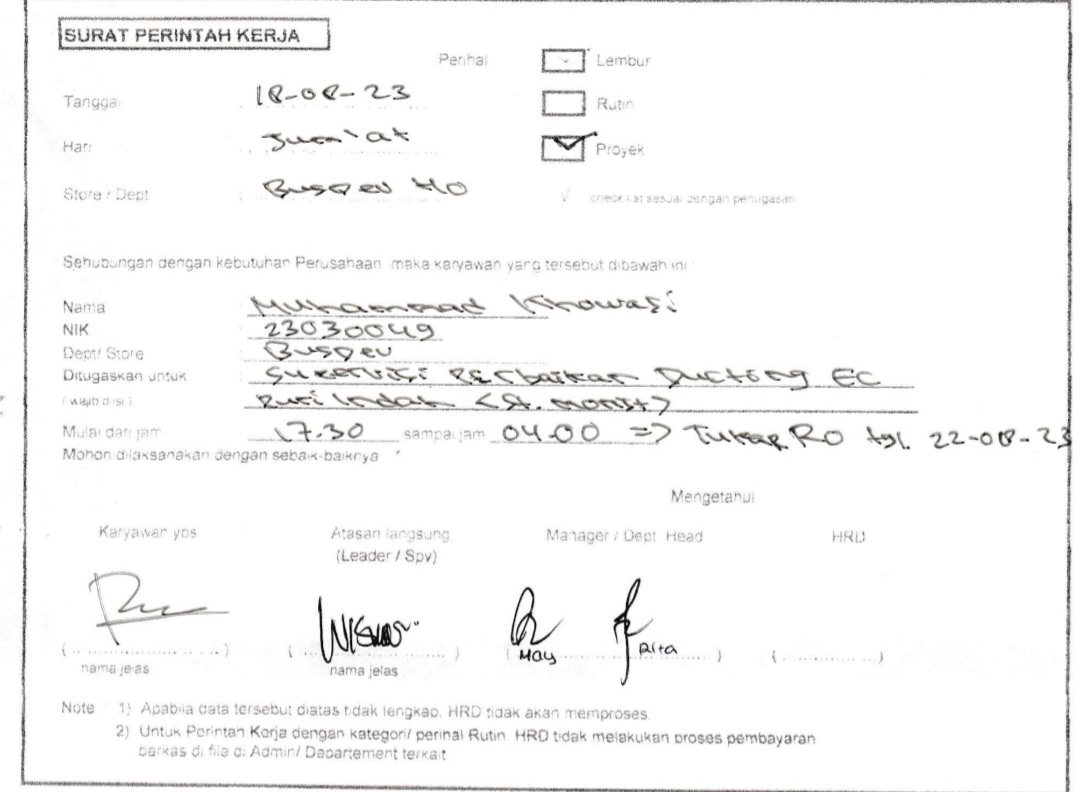 SURAT PERINTAH KERJA
Perihal
Lembur
Tanggal 18-08-23
Rutin
Hari Jum'at
Proyek
Store / Dept : Busdev HO
V checklist sesuai dengan penugasan
Sehubungan dengan kebutuhan Perusahaan maka karyawan yang tersebut dibawah ini :
Nama : Muhammad Khowasi
NIK : 23030049
Dept/ Store : Busdev
Ditugaskan untuk : Supervisi Perbaikan Ducting EC
( wajib diisi ) Puri Indah (St. Morist)
Mulai dari jam 17.30 sampai jam 04.00 => Tukar RO tgl. 22-08-23
Mohon dilaksanakan dengan sebaik-baiknya
Mengetahui
Karyawan ybs Atasan langsung Manager / Dept. Head HRD
(Leader / Spv)
May Rita
(....................) (....................) (....................) (....................)
nama jelas nama jelas
Note 1) Apabila data tersebut diatas tidak lengkap, HRD tidak akan memproses.
2) Untuk Perintah Kerja dengan kategori/ perihal Rutin, HRD tidak melakukan proses pembayaran
berkas di file di Admin/ Departement terkait